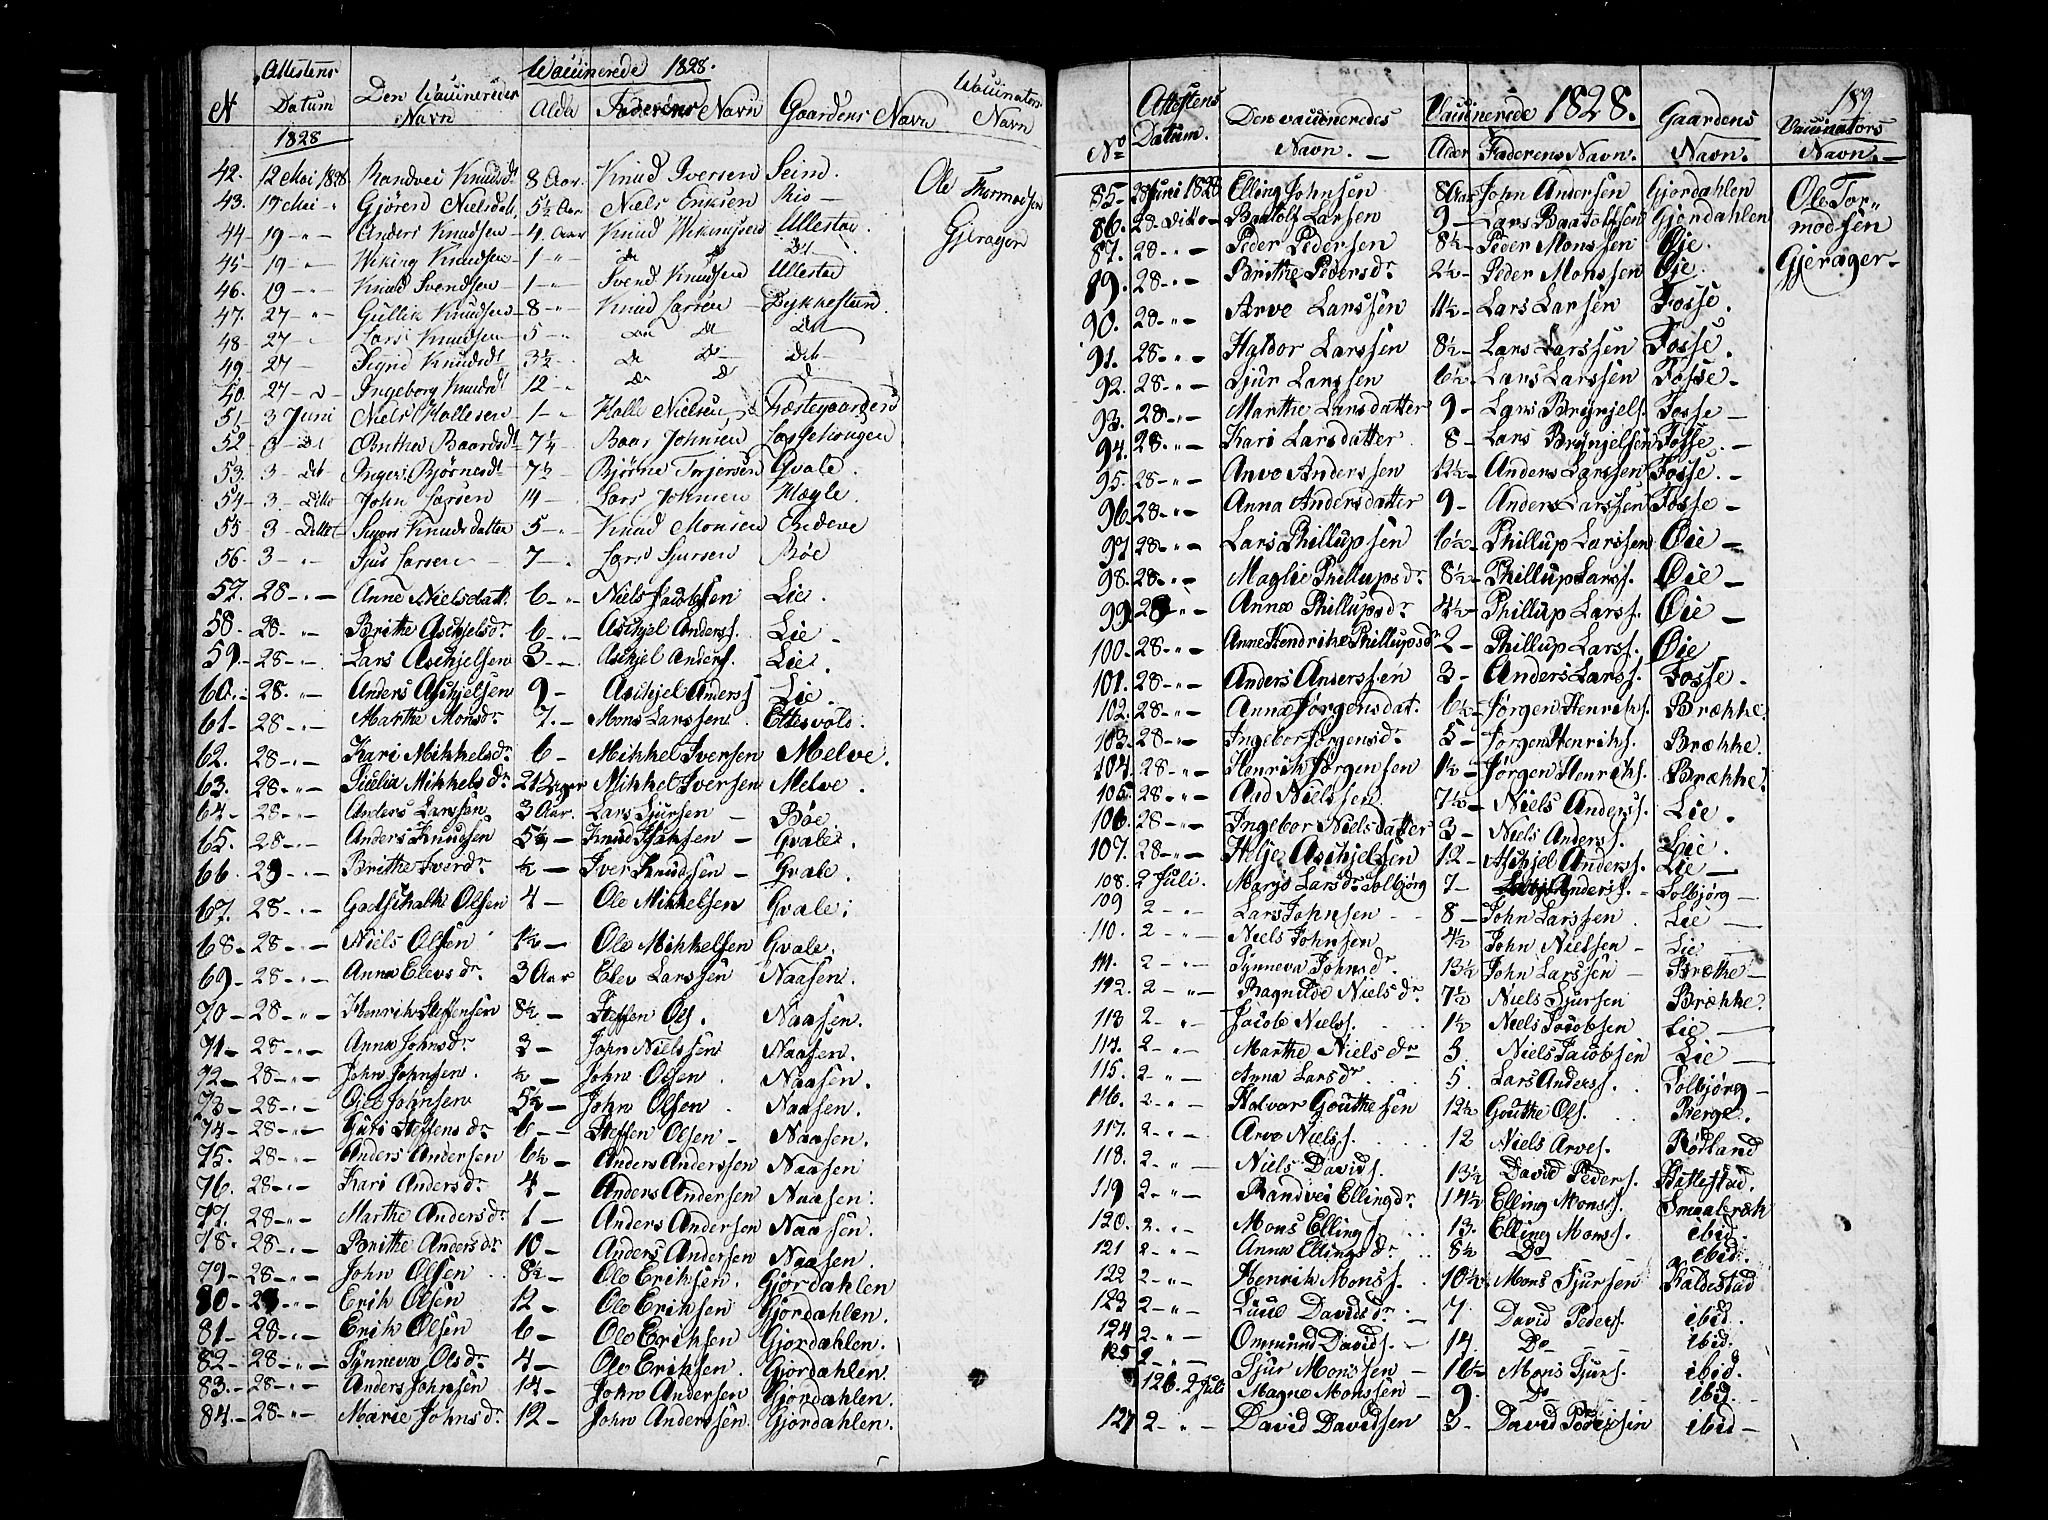 Attestens Datum
Den Vaccineredes Navn
Vaccinerede 1828.
N Alder Faderens Navn Gaardens Navn Vaccinators Navn
1828
42. 12 Mai 1828 Randvei Knudsdt 8 Aar Knud Iversen Seim. Ole Thormodsen
43. 17 Mai - Gjøren Nielsdat. 5½ Aar Niels Eriksen Rio -
44 - 19 - " - Anders Knudsen - 4 Aar Knud Wikingsen Ullestad. Gjerager
45 - 19 - " - Wiking Knudsen - 1 - " do do Dt
46. 19 - " - Knud Svendsen - 1 - " Svend Knudsen Ullestad
47. 27 - " - Gullik Knudsen - 8 - " Knud Larsen Dykkesteen
48 - 27 - Lars Knudsen - 5 - do do Dt
49. 27 - Sigrid Knudsdt 3½ - do Do - Dito
50. 27 - " - Ingeborg Knudsdt 12 - " do do do
51 - 3 Juni Niels Hallesen - 1 - " Halle Nielsen Præstegaarden
52 - 3 - Dt Brithe Baardsdt 7½ - Baar Johnsen
53. 3 - Dito Inger Bjørnesdt 7½ - Bjørne Torjersen Gvale.
54 - 3 - Dito John Larsen 14 - Lars Johnsen Hægle.
55 - 3 - Knudsdatter 5 - " Knud Monsen
56. 3 - " - Sjur Larsen - 7 - Lars Sjursen Bøe
57. 28 - " - Anne Nielsdatt. 6 - " Niels Jacobsen Lie.
58. 28 - " - Brithe Aschjelsdr. 6 - " Aschjel Anderss. Lie -
59. - 28 - " - Lars Aschjelsen 3 - - Aschjel Anders. Lie.
60. - 28. " - Anders Aschjelsen 9 - Aschjel Anderss Lie.
61 - 28 - " - Marthe Monsdr. 7. - Mons Larssen. Ettesvold.
62. 28 - " - Kari Mikkelsdr. 6 - Mikkel Iversen Melve.
63. 28 - " - Sicilia Mikkelsdr. 21 Uger Mikkel Iversen Melve.
64 - 28 - " - Anders Larssen 3 Aar. Lars Sjursen - Bøe
65. 28 - " - Anders Knudsen 5½ - Knud Hansen - Gvale.
66 28 - " - Brithe Iversdr. ½ - Iver Knudssen - Gvale.
67. 28 - " - Godschalk Olsen 4 - Ole Mikkelsen Gvale.
68 - 28 - " - Niels Olsen 1½ - Ole Mikkelsen Gvale.
69 - 28 - " - Anna Elevsdr. 3 Aar Elev Larssen Naasen.
70 - 28 - " - Henrik Steffensen 8½ - Steffen Ols. Naasen.
71 - 28 - " - Anna Johnsdr. 3 - John Nielssen Naasen.
72 - 28 - " - John Johnsen. ½ - John Olsen Naasen.
73 - 28 - " - Ole Johnsen 5½ - John Olsen. Naasen.
74 - 28 - " - Guri Steffensdr. 6 - - Steffen Olsen - Naasen.
75. 28 - " - Anders Andersen 6½ - Anders Anderssen Naasen
76. 28 - " - Kari Andersdr. 4 - Anders Andersen Naasen.
77. 28 - " - Marthe Andersdr. 1 - Anders Andersen Naasen.
78. 28 - " - Brithe Andersdr. 10 - Anders Andersen Naasen.
79 - 28 - " - John Olsen . . 8½ - Ole Eriksen. Gjordahlen
80 - 28 - " - Erik Olsen 12 - Ole Eriksen Gjordahlen.
81 - 28 - " - Erik Olsen 6 - Ole Eriksen Gjordahlen.
82 - 28 - " - Synneva Olsdr. 4 - Ole Eriksen. Gjordahlen.
83. - 28 - " - Anders Johnsen 14 - John Andersen Gjordahlen.
84. - 28 - " - Marie Johnsdr. 12 - John Anderssen. Gjordahlen.
189.
No Attestens Datum. Den vaccineredes Navn. - Vaccinerede 1828. Alder Faderens Navn. Gaardens Navn. Vaccinators Navn. -
85 - 28 Juni 1828 Elling Johnsen 8 Aar John Andersen Gjordahlen Ole Tor=
86. 28 Dito - Baatolf Larsen 9 - Lars Baatolfsen Gjordahlen modsen
87. 28 - " - Peder Pedersen 8½ - Peder Monssen Øie. Gjerager -
89. 28 - " - Brithe Pedersdr. 2½ - Peder Monssen Øie.
90. 28 - " - Arve Larssen 11½ - Lars Larsen Fosse.
91. 28 - " - Haldor Larssen 8½ - Lars Larssen Fosse.
92. 28 - " - Sjur Larssen 6½ - Lars Larssen Fosse -
93. 28 - " - Marthe Larsdatter 9 - Lars Brynjels. Fosse -
94. 28 - " - Kari Larsdatter 8 - Lars Brynjelsen Fosse. -
95. 28 - " - Arve Anderssen 12½ - Anders Larssen Fosse. -
96. 28 - " - Anna Andersdatter 9 - Anders Larssen Fosse -
97 28 - " - Lars Phillupsen 6½ - Phillup Larssen Øie -
98. 28 - " - Maglie Phillupsdr. 8½ - Phillup Larss. Øie -
99 28 - " - Anna Phillupsdr. 4½ - Phillup Larss. Øie -
100. 28 - " - Anne Hendrike Phillupsdr 2 - Phillup Larss. Øie
101. 28 - " - Anders Anderssen 3 - Anders Larss. Fosse -
102. 28 - " - Anna Jørgensdat. 6½ - Jørgen Henriks. Brække.
103. 28 - " - Ingebor Jørgensdr. 5 - Jørgen Henriks. Brække.
104. 28 - " - Henrik Jørgensen 1½ - Jørgen Henriks. Brække.
105. 28 - " - Aad Nielssen 7½ - Niels Anderss. Lie.
106. 28 - " - Ingebor Nielsdatter 3 - Niels Anders. Lie.
107. 28 - " - Helje Aschjelsen 12 - Aschjel Anderss. Lie -
108. 2 Juli. Margo Larsdr. Solbjørg 7 - Anderss. - Solbjørg -
109 2 - " Lars Johnsen - - 8 - John Larssen Lie -
110. 2 - " Niels Johnsen 4½ John Nielsen - Lie -
111. 2 - " - Synneva Johnsdr. 13½ John Larssen - Brække -
112. 2 - " - Ragnilde Nielsdr. 7½ Niels Sjursen Brække.
113 2 - " Jacob Nielss. . . . 1½ Niels Jacobsen Lie -
114. 2 - " - Marthe Nielsdr - 3. Niels Jacobsen Lie -
115. 2 - " - Anna Larsdr. . . . 5. Lars Anderss. . Solbjørg -
116. 2 - " - Halvor Gouthesen 12½ Gouthe Ols. . . Berge.
117. 2 - " - Arve Nielss. . . . 12 Niels Arves. Rødland
118. 2 - " - Niels Davids. . 13½ David Peders. Hillestad.
119 2 - " - Randvei Ellingdr. 14½ Elling Monss. Smaabræk
120. 2 - " - Mons Ellings. . . 13. Elling Monss. ibid.
121 2 - " - Anna Ellingsdr. . . 8½ Do - - ibid.
122 2 - " - Henrik Monss. . . 10½ Mons Sjursen Kaldestad
123 2 - " - Davidsdr. - 7 David Peders. ibid.
124 2 - " - Omund Davids. - 14. Do - - ibid.
125 2 - " - Sjur Monssen - 16½ Mons Sjurs. ibid.
126. 2 Juli Magne Monssen - 9. Do - ibid.
127 2 - " - David Davidsen 3 - David Pedersen ibid -